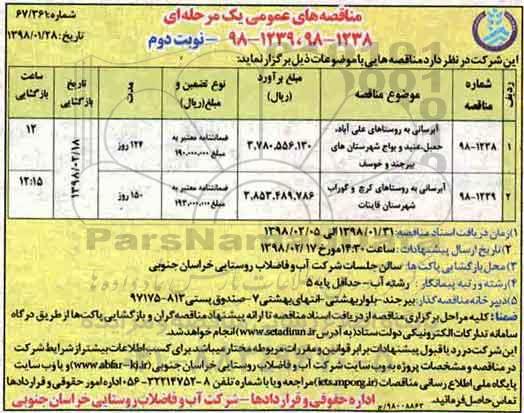 مناقصه های عمومی یک مرحله ای
۹۸-۱۲۳۸ ، ۹۸-۱۲۳۹ - نوبت دوم
شماره: ۶۷/۳۶۱
تاریخ: ۱۳۹۸/۰۱/۲۸
این شرکت در نظر دارد مناقصه هایی با موضوعات ذیل برگزار نماید:
ردیف | شماره مناقصه | موضوع مناقصه | مبلغ برآورد (ریال) | نوع تضمین و مبلغ (ریال) | مدت | تاریخ بازگشایی | ساعت بازگشایی
۱ | ۹۸-۱۲۳۸ | آبرسانی به روستاهای علی آباد، حمیل، عنبد و بواج شهرستان های بیرجند و خوسف | ۳,۷۸۰,۵۵۶,۱۳۰ | ضمانتنامه معتبر به مبلغ ۱۹۰,۰۰۰,۰۰۰ | ۱۲۴ روز | ۱۳۹۸/۰۲/۱۸ | ۱۲
۲ | ۹۸-۱۲۳۹ | آبرسانی به روستاهای کرچ و گوراب شهرستان قاینات | ۳,۸۵۳,۴۸۹,۷۸۶ | ضمانتنامه معتبر به مبلغ ۱۹۳,۰۰۰,۰۰۰ | ۱۵۰ روز | ۱۲:۱۵
۱) زمان دریافت اسناد مناقصه: ۱۳۹۸/۰۱/۳۱ الی ۱۳۹۸/۰۲/۰۵
۲) تاریخ ارسال پیشنهادات: ساعت ۱۴:۳۰ مورخ ۱۳۹۸/۰۲/۱۷
۳) محل بازگشایی پاکت ها: سالن جلسات شرکت آب و فاضلاب روستایی خراسان جنوبی
۴) رشته و رتبه پیمانکار: رشته آب - حداقل پایه ۵
۵) دبیرخانه مناقصه گذار: بیرجند - بلوار بهشتی - انتهای بهشتی ۷ - صندوق پستی ۸۱۲-۹۷۱۷۵
ضمنا: کلیه مراحل برگزاری مناقصه از دریافت اسناد مناقصه تا ارائه پیشنهاد مناقصه گران و بازگشایی پاکت ها از طریق درگاه
سامانه تدارکات الکترونیکی دولت ستاد (به آدرس www.setadiran.ir) انجام خواهد شد.
این شرکت در رد یا قبول پیشنهادات برابر قوانین و مقررات مربوطه مختار میباشد برای کسب اطلاعات بیشتر از شرایط شرکت
در مناقصه و مشخصات پروژه به وب سایت شرکت آب و فاضلاب روستایی خراسان جنوبی (www.abfar-kj.ir) و یا وب سایت
پایگاه ملی اطلاع رسانی مناقصات (iets.mporg.ir) مراجعه و یا با شماره تلفن ۸-۳۲۲۱۴۷۵۲-۰۵۶ اداره امور حقوقی و قراردادها
تماس حاصل فرمائید.
م/الف ۹۸۰۰۸۸۶۳
اداره حقوقی و قراردادها - شرکت آب و فاضلاب روستایی خراسان جنوبی
ParsNamad